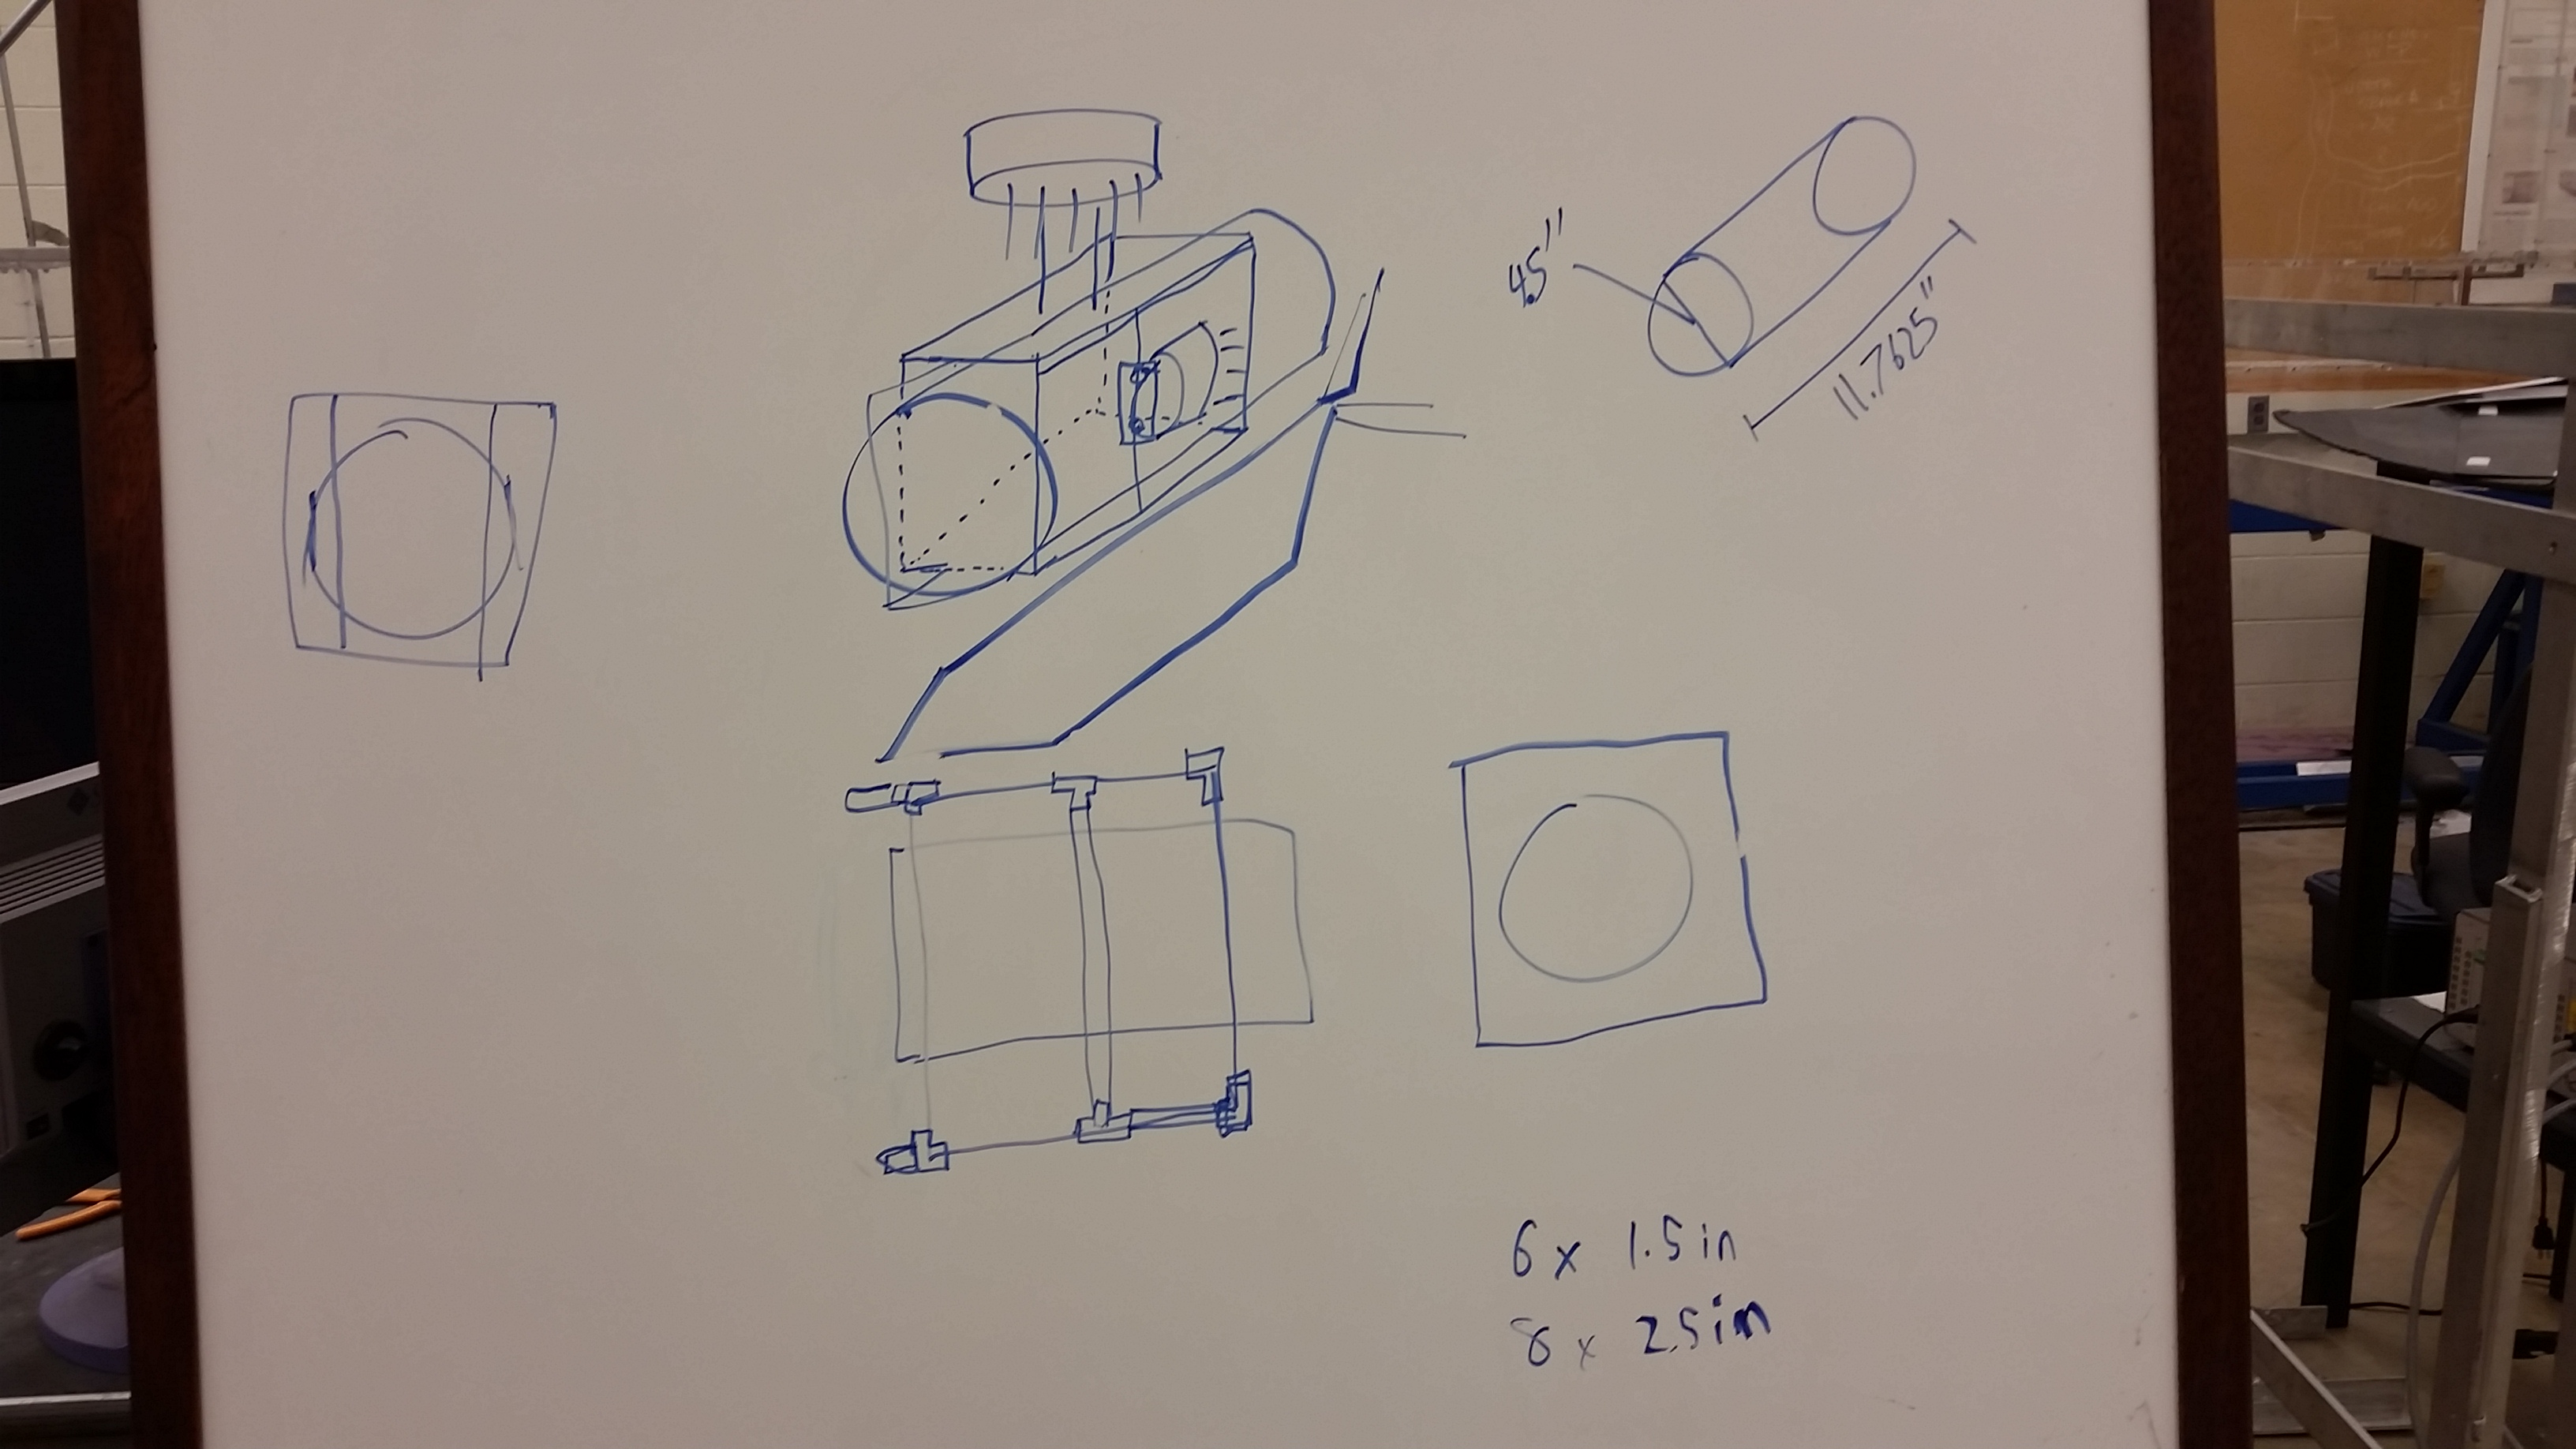 4.5"
11.7625"
6 x 1.5 in
8 x 2.5 in